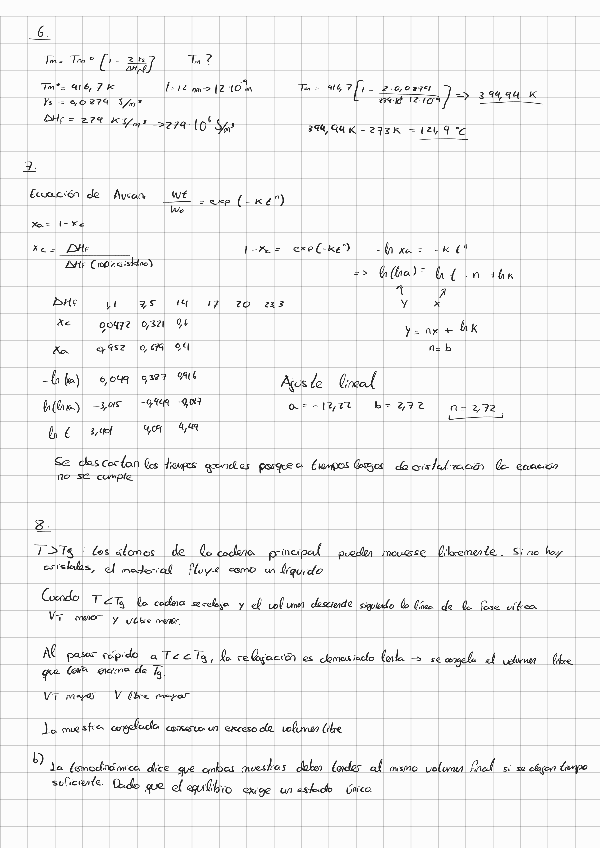 6.
Tm = Tm° [1 - 2γs / ΔHf·l]   Tm?
Tm° = 416,7 K   l = 12 nm -> 12·10⁻⁹ m   Tm = 416,7 [1 - 2·0,0874 / 279·10⁶·12·10⁻⁹] => 394,94 K
γs = 0,0874 J/m²
ΔHf = 279 KJ/m³ -> 279·10⁶ J/m³   394,94 K - 273 K = 121,9 °C
7.
Ecuación de Avrami   Wt / Wo = exp (-K tⁿ)
Xa = 1 - Xc
Xc = ΔHf / ΔHf (100% cristalino)   1 - Xc = exp(-Ktⁿ)   -ln Xa = -K tⁿ
=> ln(lna) = ln t · n + ln K
y   x
ΔHf   1,1   7,5   14   17   20   23,3
Xc   0,0472   0,321   0,6   y = nx + ln K
Xa   0,952   0,679   0,4   n = b
-ln(Xa)   0,049   0,387   0,916   Ajuste lineal
ln(lnXa)   -3,015   -0,949   -0,087   a = -12,22   b = 2,72   n = 2,72
ln t   3,401   4,09   4,49
Se descartan los tiempos grandes porque a tiempos largos de cristalización la ecuación
no se cumple
8.
T > Tg : Los átomos de la cadena principal pueden moverse libremente. Si no hay
cristales, el material fluye como un líquido
Cuando T < Tg la cadena se relaja y el volumen desciende siguiendo la línea de la fase vítrea
VT menor y Vlibre menor.
Al pasar rápido a T << Tg, la relajación es demasiado lenta -> se congela el volumen libre
que tenía encima de Tg.
VT mayor   V libre mayor
La muestra congelada conserva un exceso de volumen libre
b) La termodinámica dice que ambas muestras deben tender al mismo volumen final si se dejan tiempo
suficiente. Dado que el equilibrio exige un estado único